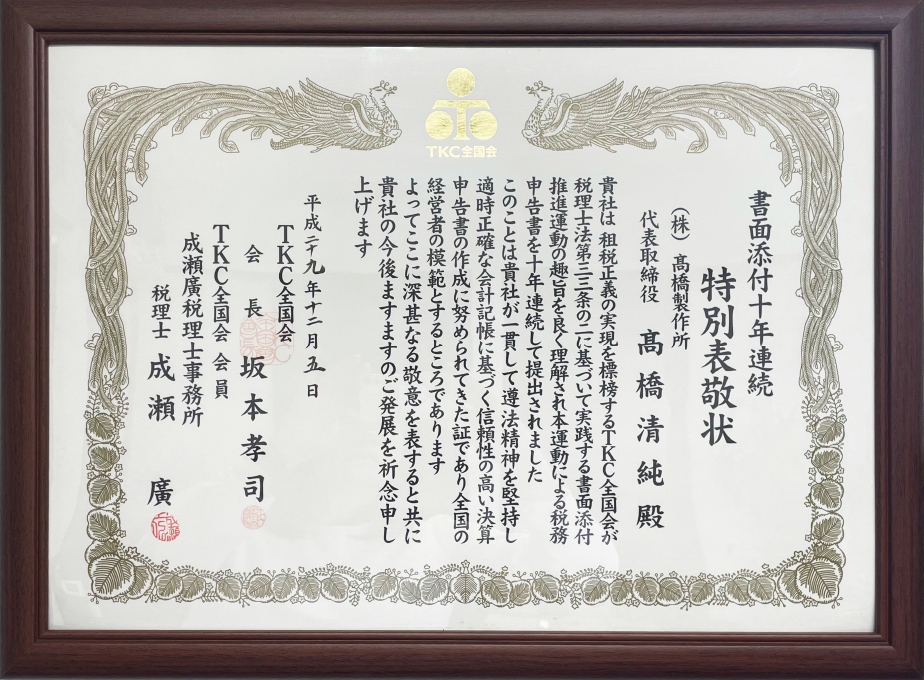 TKC全国会
書面添付十年連続
特別表敬状
(株)髙橋製作所
代表取締役 髙橋清純殿
貴社は 租税正義の実現を標榜するTKC全国会が
税理士法第三三条の二に基づいて実践する書面添付
推進運動の趣旨を良く理解され本運動による税務
申告書を十年連続して提出されました
このことは貴社が一貫して遵法精神を堅持し
適時正確な会計記帳に基づく信頼性の高い決算
申告書の作成に努められてきた証であり全国の
経営者の模範とするところであります
よってここに深甚なる敬意を表すると共に
貴社の今後ますますのご発展を祈念申し
上げます
平成二十九年十二月五日
TKC全国会
会長 坂本孝司
TKC全国会 会員
成瀬廣税理士事務所
税理士 成瀬 廣